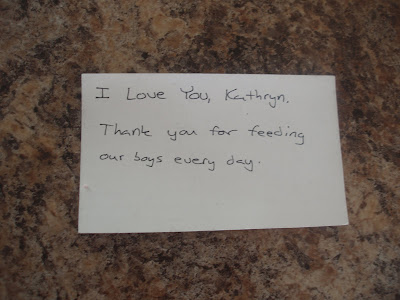 I Love You, Kathryn.
Thank you for feeding
our boys every day.